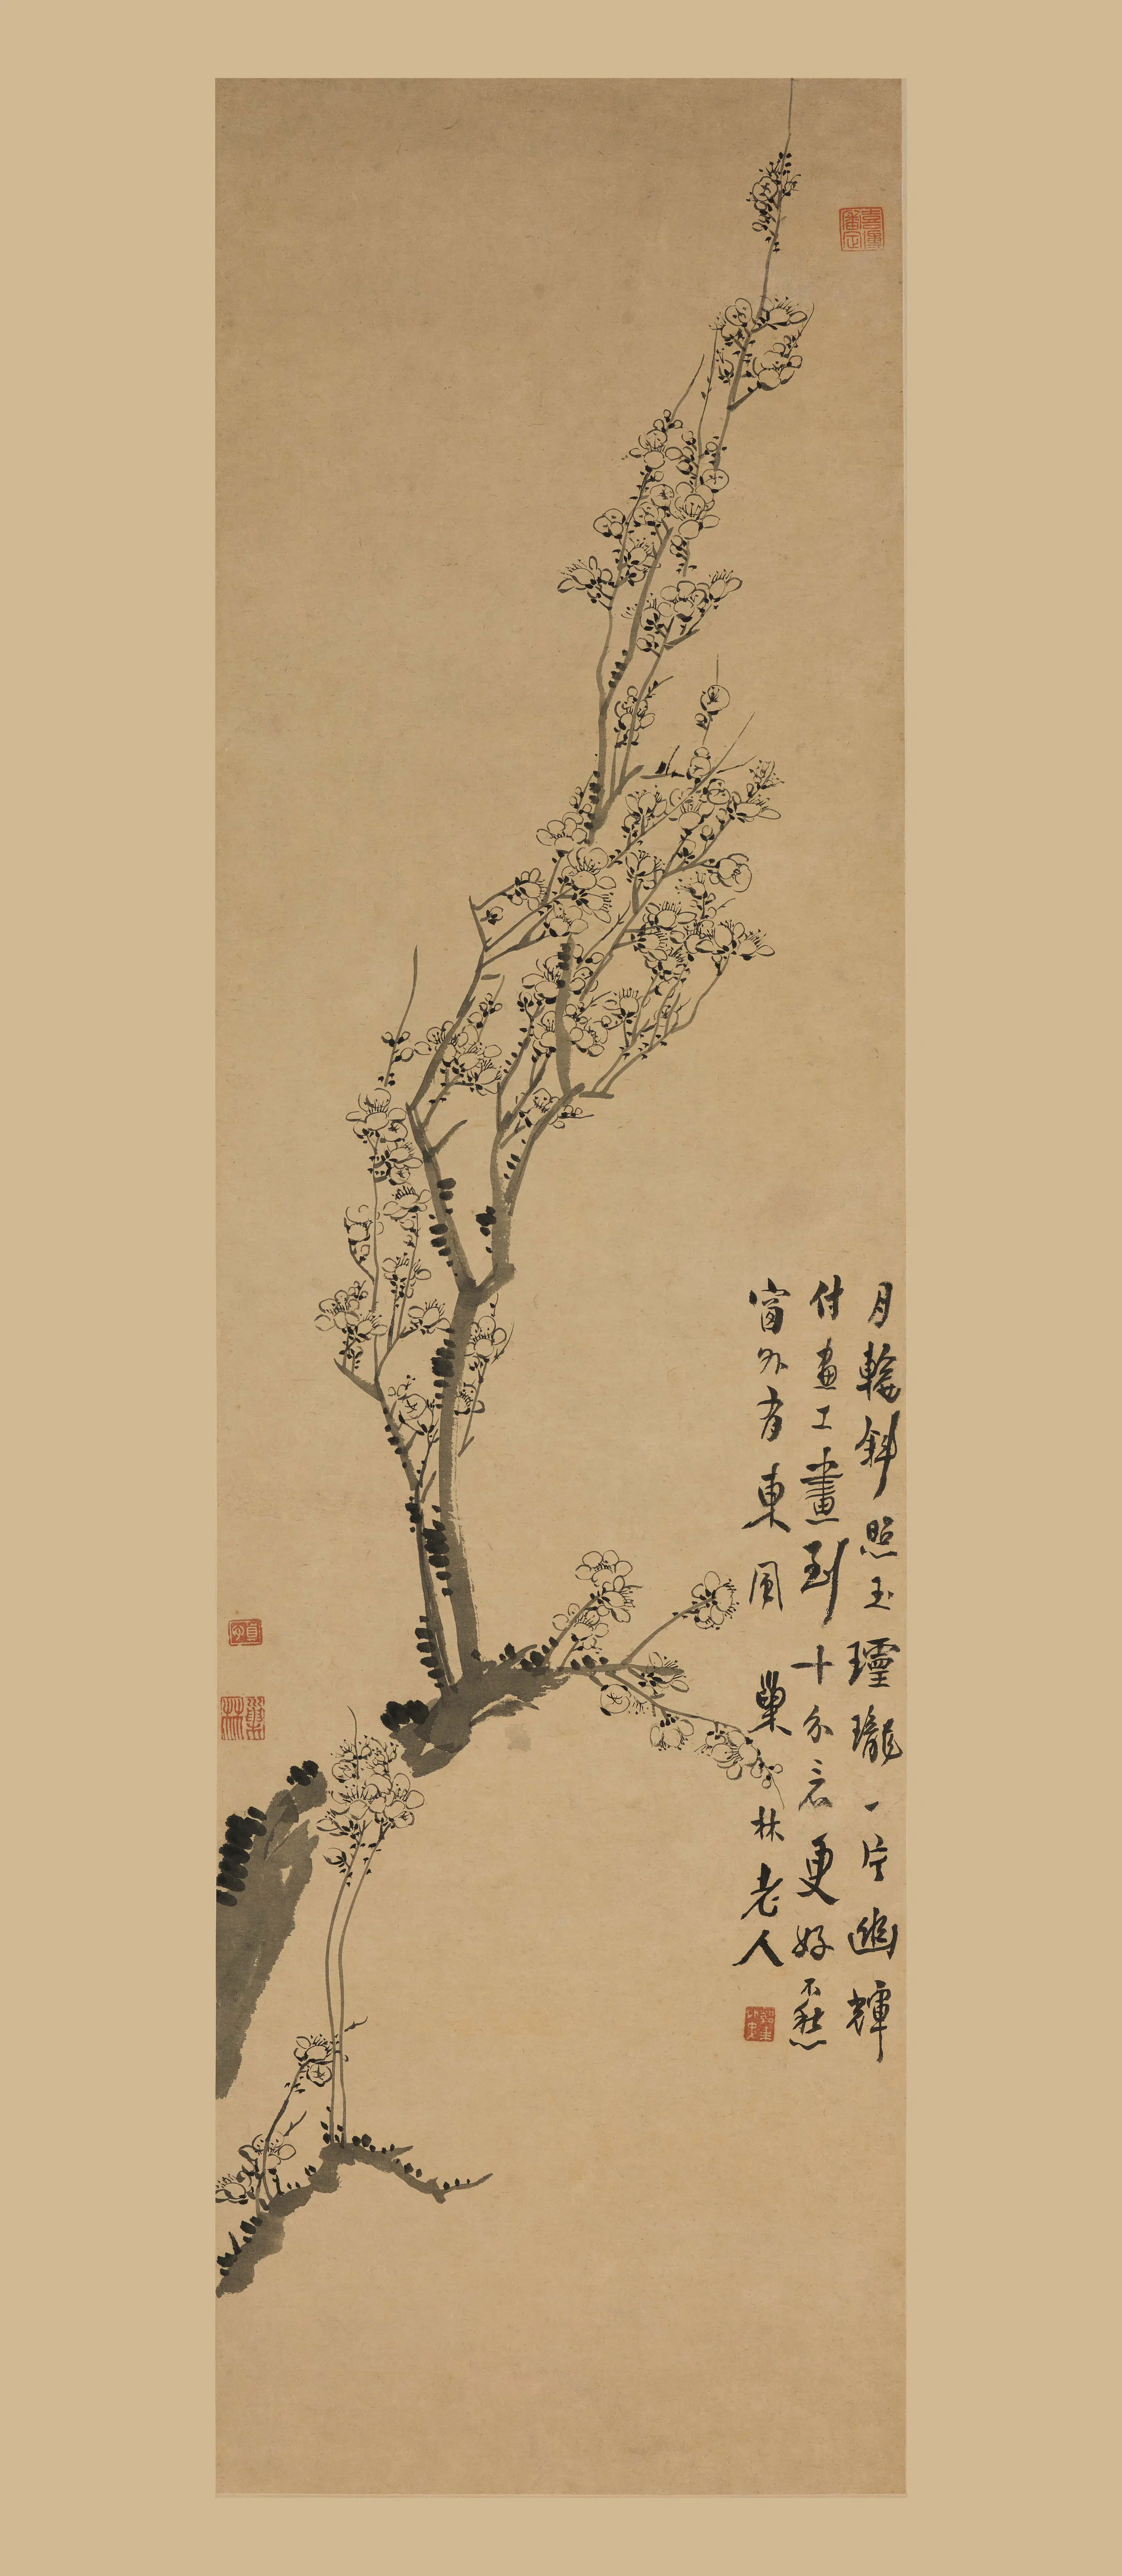 月輪斜照玉瓏一片幽輝
付畫工畫到十分更好不愁
窗外有東風 巢林老人